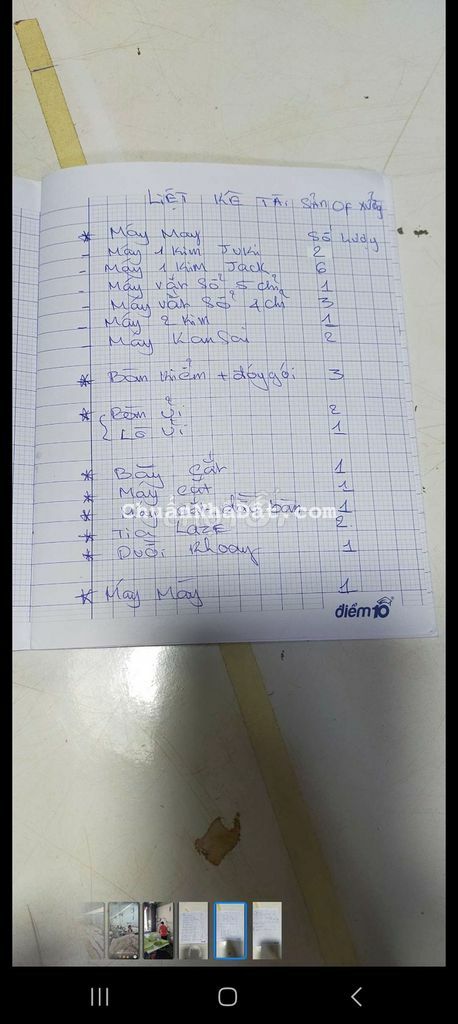 LIỆT KÊ TÀI SẢN OF XƯỞNG
* Máy May Số lượng
- Máy 1 kim Juki 2
- Máy 1 kim Jack 6
- Máy vắt sổ 5 chỉ 1
- Máy vắt sổ 4 chỉ 3
- Máy 2 kim 1
- Máy KanSai 2
* Bàn kiểm + đóng gói 3
* Bàn ủi 2
Lò ủi 1
* Bàn cắt 1
* Máy cắt 1
* bàn 1
ChuẩnNhàĐất.com
* Tia LazE 2
* Dưỡi khoay 1
* Máy May 1
điểm 10